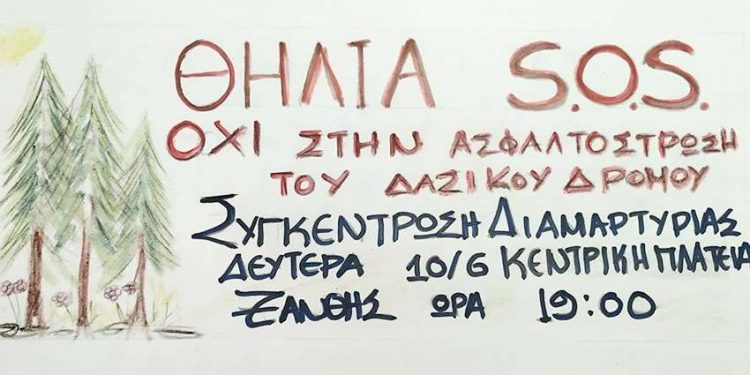 ΘΗΛΙΑ S.O.S.
ΟΧΙ ΣΤΗΝ ΑΣΦΑΛΤΟΣΤΡΩΣΗ
ΤΟΥ ΔΑΣΙΚΟΥ ΔΡΟΜΟΥ
ΣΥΓΚΕΝΤΡΩΣΗ ΔΙΑΜΑΡΤΥΡΙΑΣ
ΔΕΥΤΕΡΑ 10/6 ΚΕΝΤΡΙΚΗ ΠΛΑΤΕΙΑ
ΞΑΝΘΗΣ ΩΡΑ 19:00